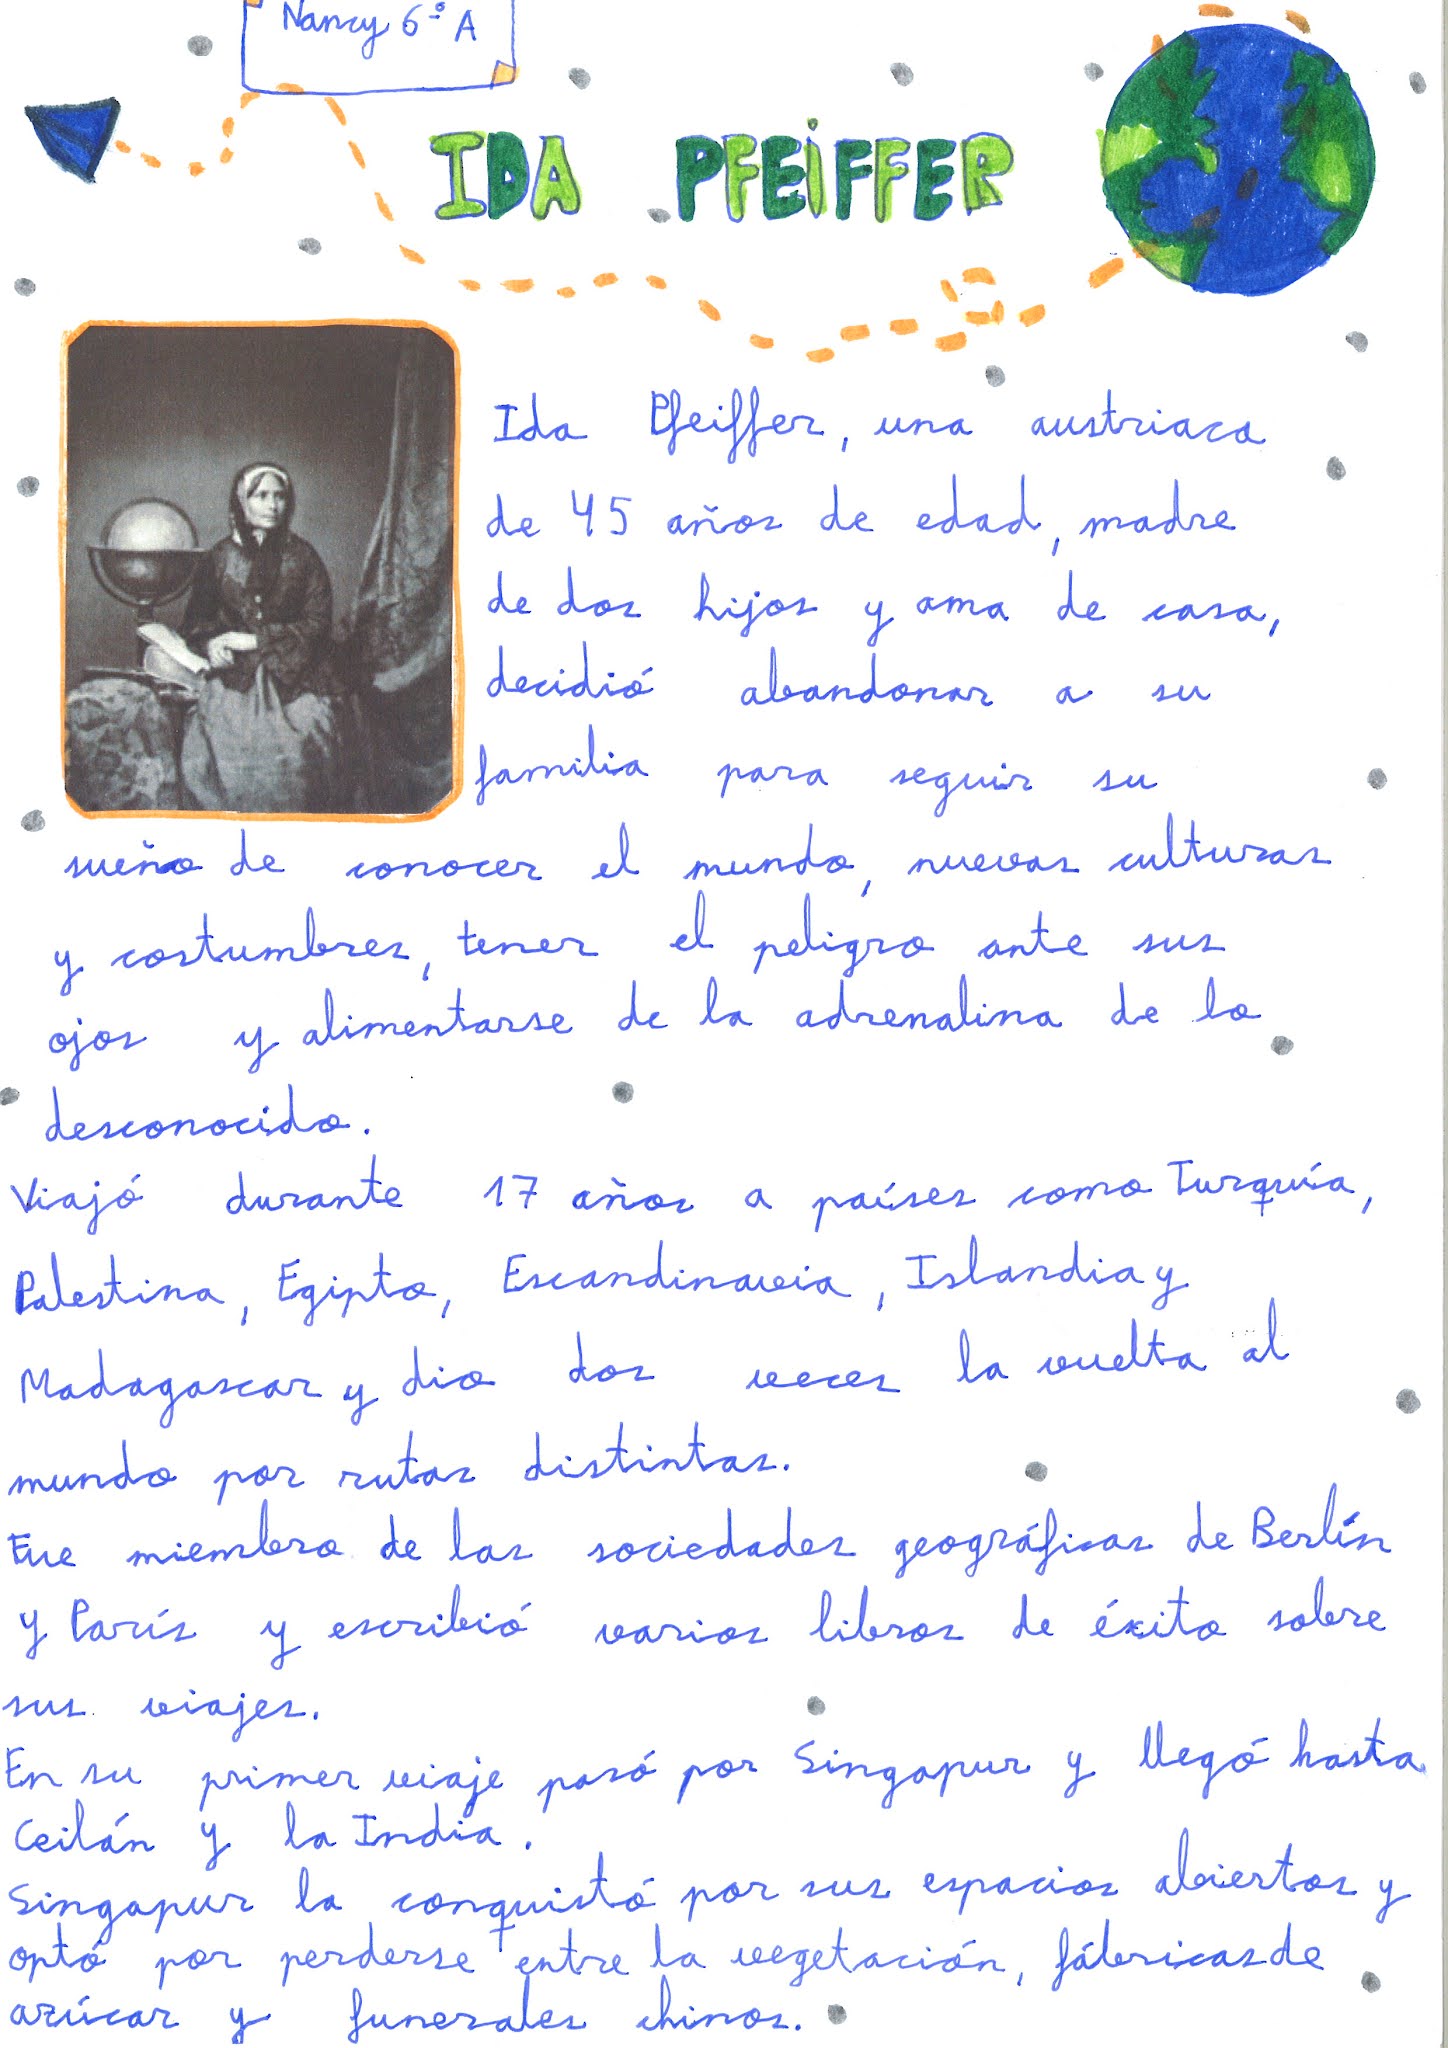 Nancy 6º A
IDA PFEIFFER
Ida Pfeiffer, una austriaca
de 45 años de edad, madre
de dos hijos y ama de casa,
decidió abandonar a su
familia para seguir su
sueño de conocer el mundo, nuevas culturas
y costumbres, tener el peligro ante sus
ojos y alimentarse de la adrenalina de lo
desconocido.
Viajó durante 17 años a países como Turquía,
Palestina, Egipto, Escandinavia, Islandia y
Madagascar y dio dos veces la vuelta al
mundo por rutas distintas.
Fue miembro de las sociedades geográficas de Berlín
y París y escribió varios libros de éxito sobre
sus viajes.
En su primer viaje pasó por Singapur y llegó hasta
Ceilán y la India.
Singapur la conquistó por sus espacios abiertos y
optó por perderse entre la vegetación, fábricas de
azúcar y funerales chinos.